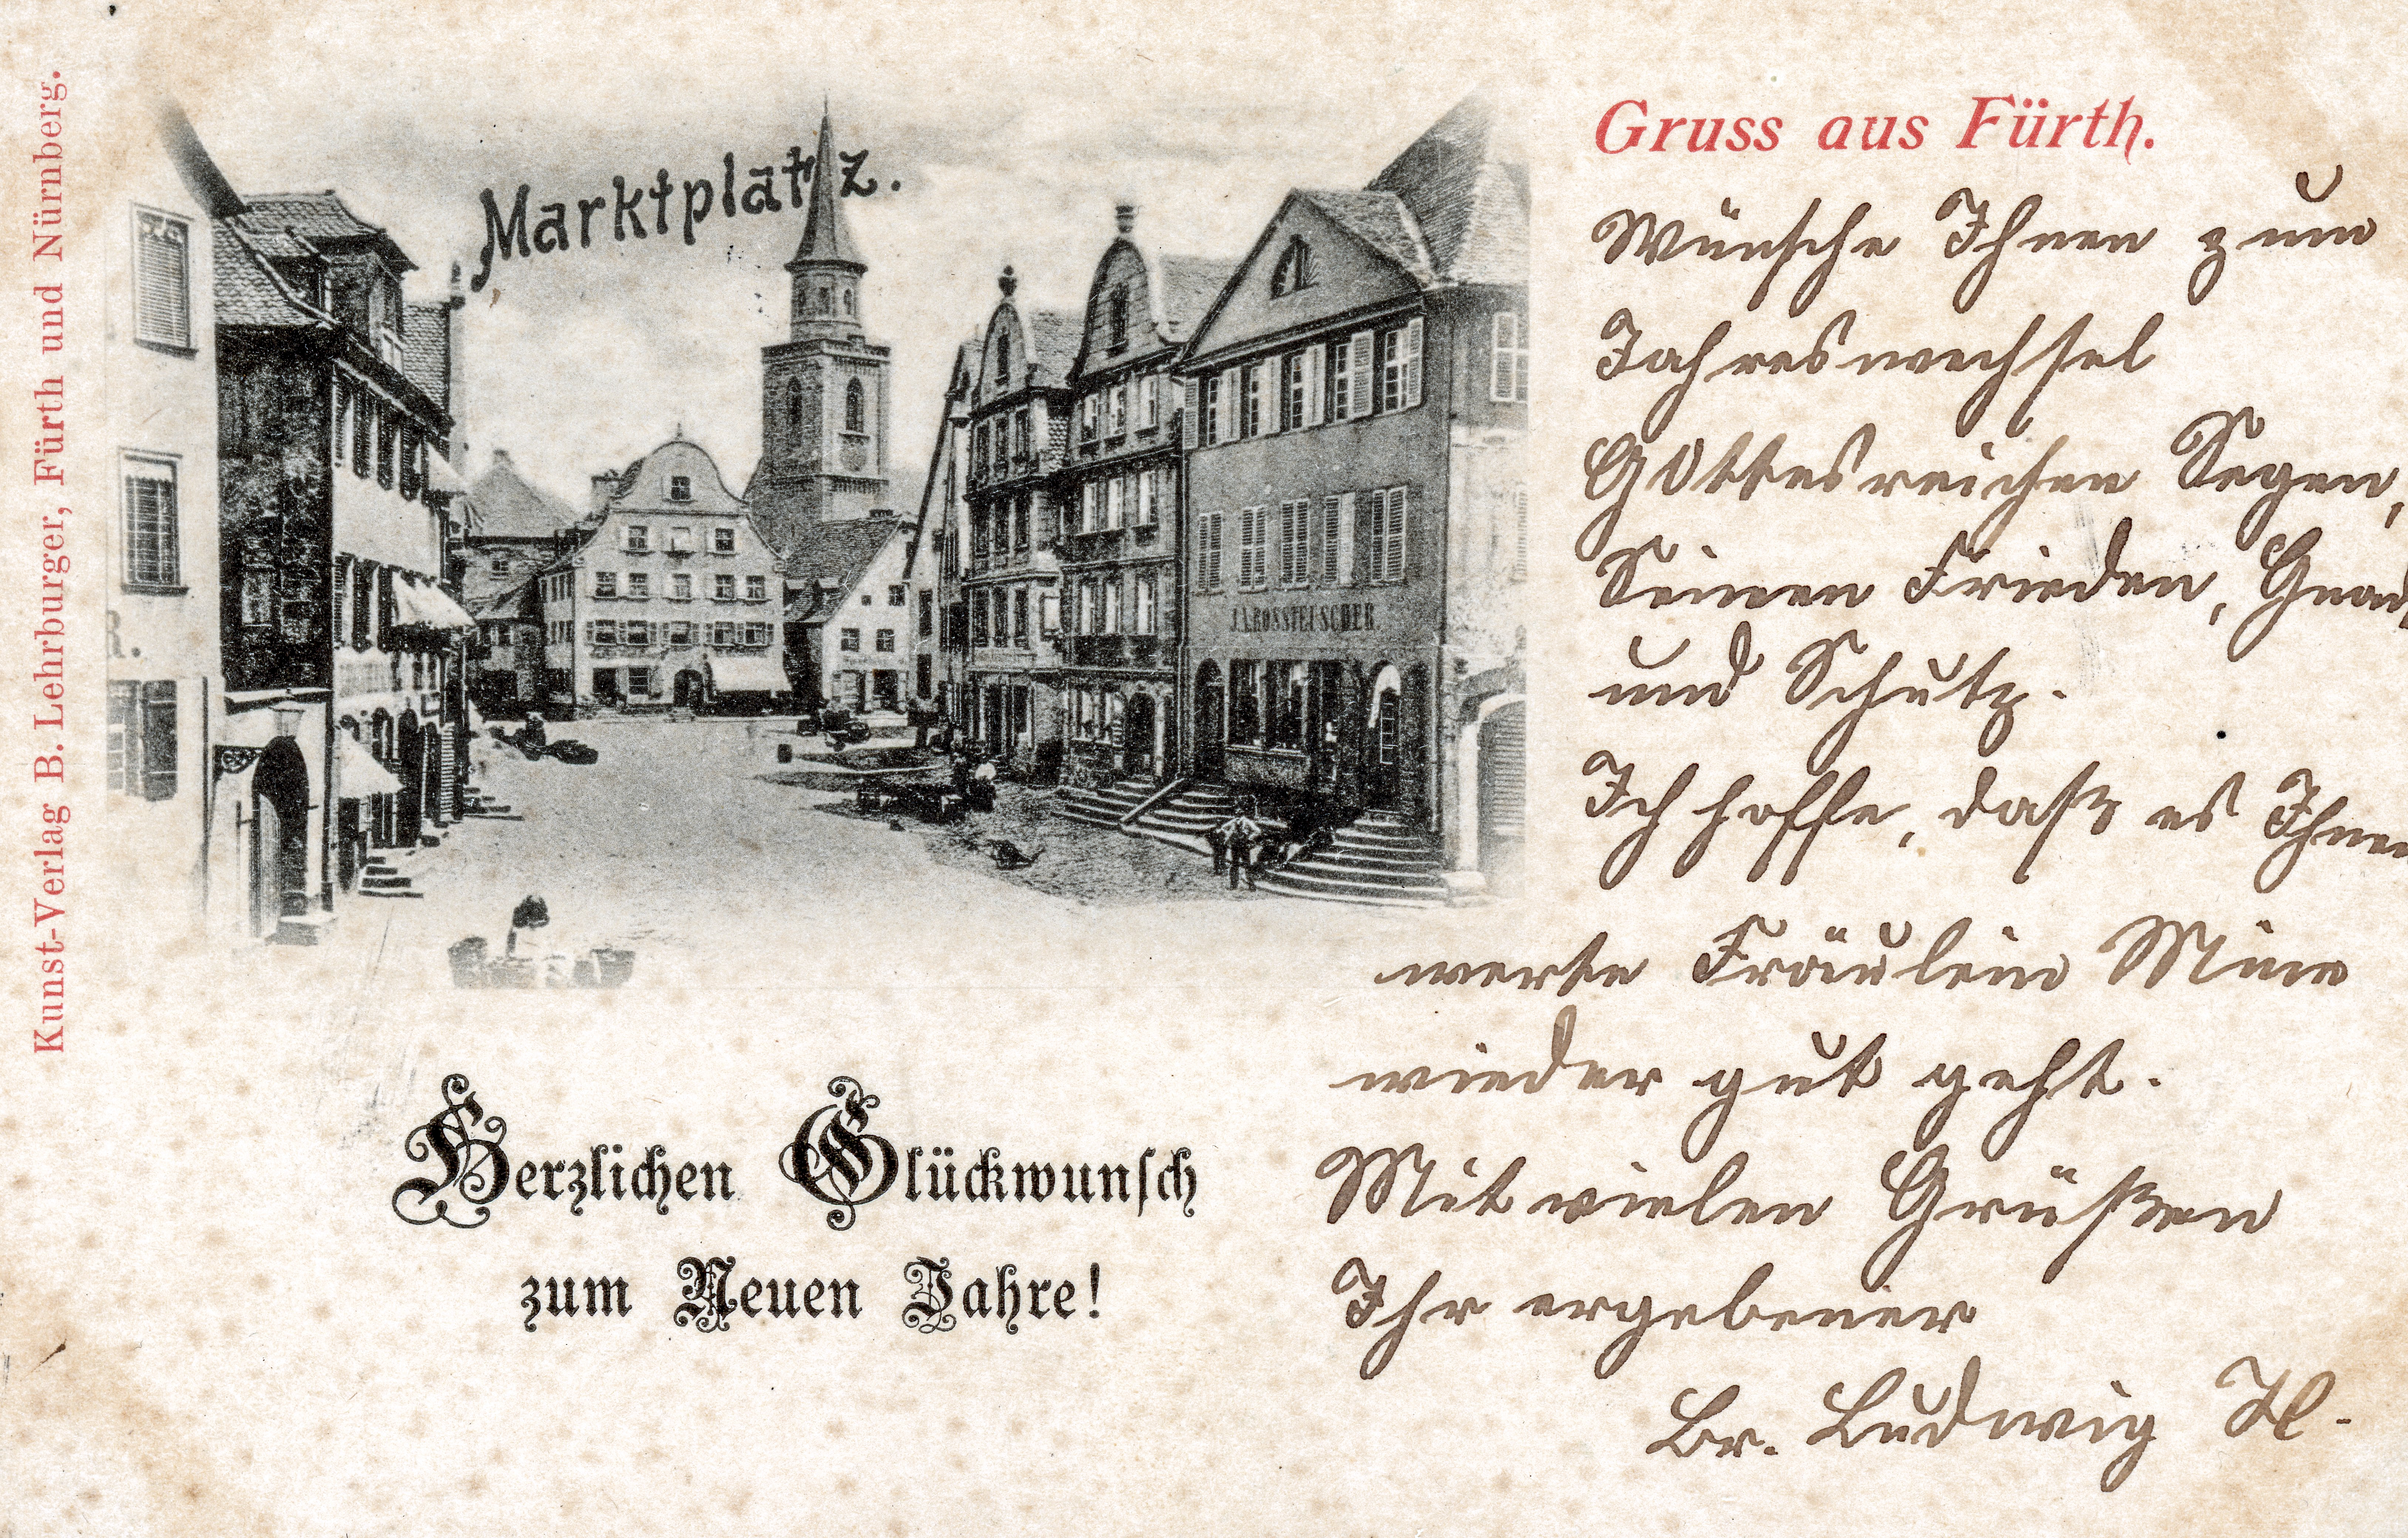 Kunst-Verlag B. Lehrburger, Fürth und Nürnberg.
Marktplatz.
J.A. ROSSTEUSCHER.
R.
Gruss aus Fürth.
Wünsche Ihnen zum
Jahreswechsel
Gottesreichen Segen,
Seinen Frieden, Gnad
und Schutz.
Ich hoffe, daß es Ihnen
werte Fräulein Mina
wieder gut geht.
Mit vielen Grüßen
Ihr ergebener
Br. Ludwig H.
Herzlichen Glückwunsch
zum Neuen Jahre!